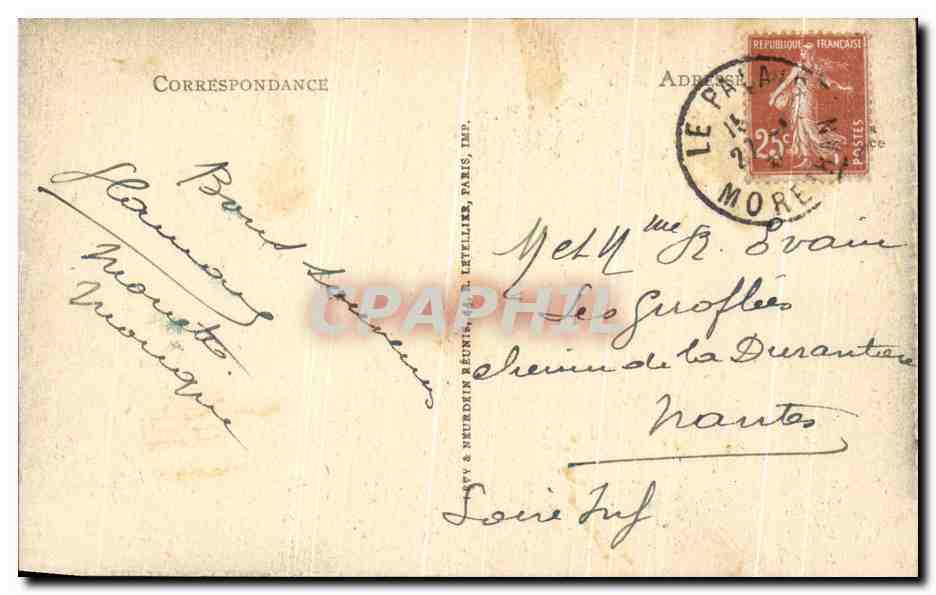 CORRESPONDANCE
Bons Souvenirs
Monique
ADRESSE
RÉPUBLIQUE FRANÇAISE
25c
POSTES
LE PALAIS
MORBIHAN
M et Mme R. Evain
Les Giroflées
chemin de la Durantière
Nantes
Loire Inf
LÉVY & NEURDEIN RÉUNIS, 44, R. LETELLIER, PARIS, IMP.
CPAPHIL